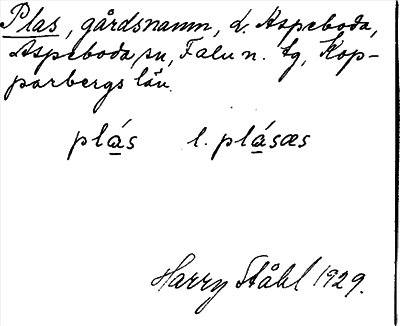 Plas, gårdsnamn, L. Aspeboda,
Aspeboda sn, Falu n. tg, Kop-
parbergs län.
plás l. plásæs
Harry Ståhl 1929.